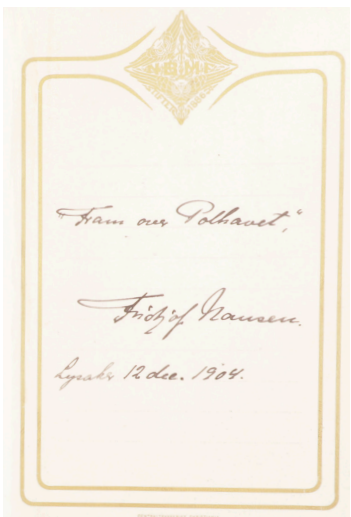 "Fram over Polhavet",
Fridtjof Nansen.
Lysaker 12 dec. 1904.